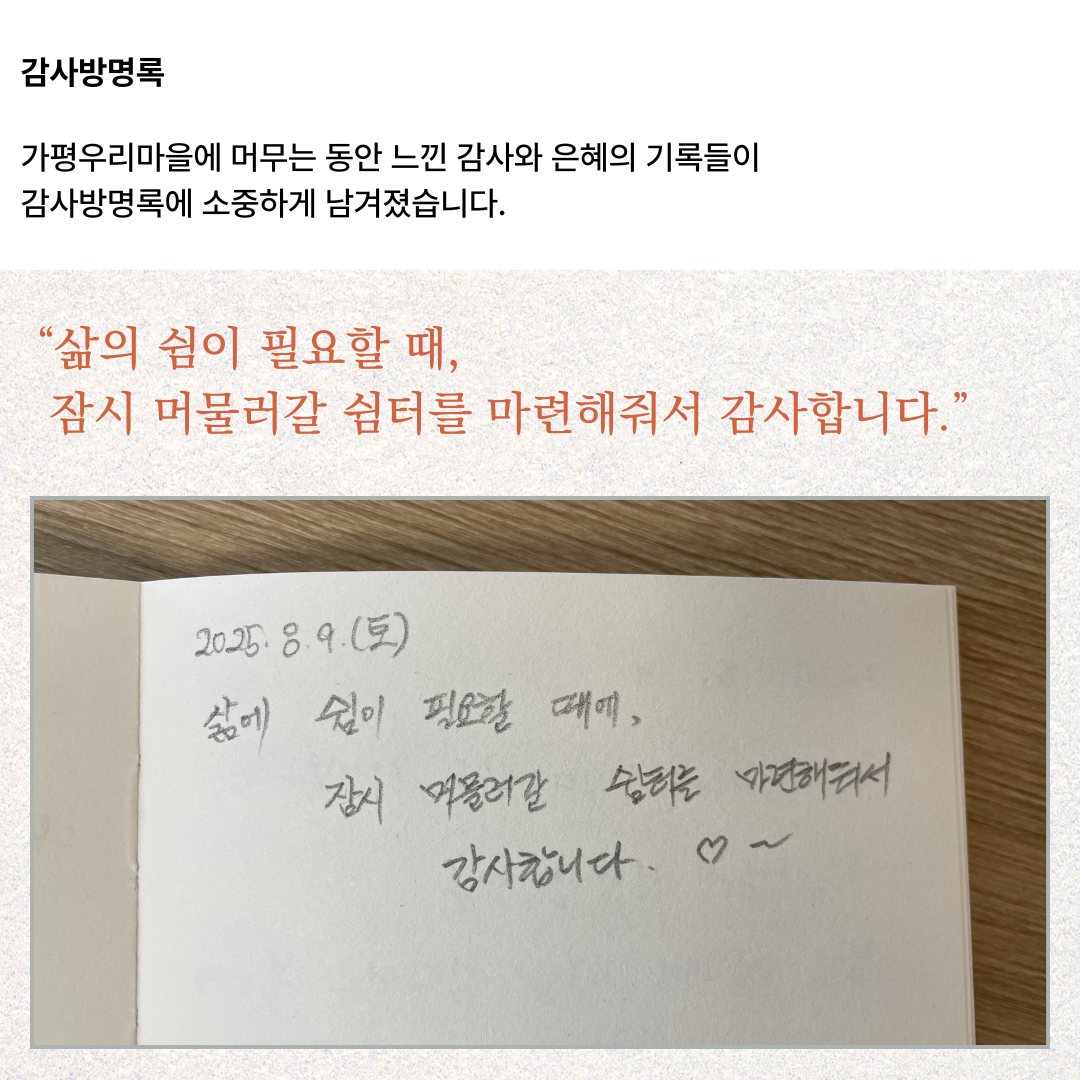 감사방명록
가평우리마을에 머무는 동안 느낀 감사와 은혜의 기록들이
감사방명록에 소중하게 남겨졌습니다.
“삶의 쉼이 필요할 때,
잠시 머물러갈 쉼터를 마련해줘서 감사합니다.”
2025. 8. 9. (토)
삶에 쉼이 필요할 때에,
잠시 머물러갈 쉼터를 마련해줘서
감사합니다. ♡ ~